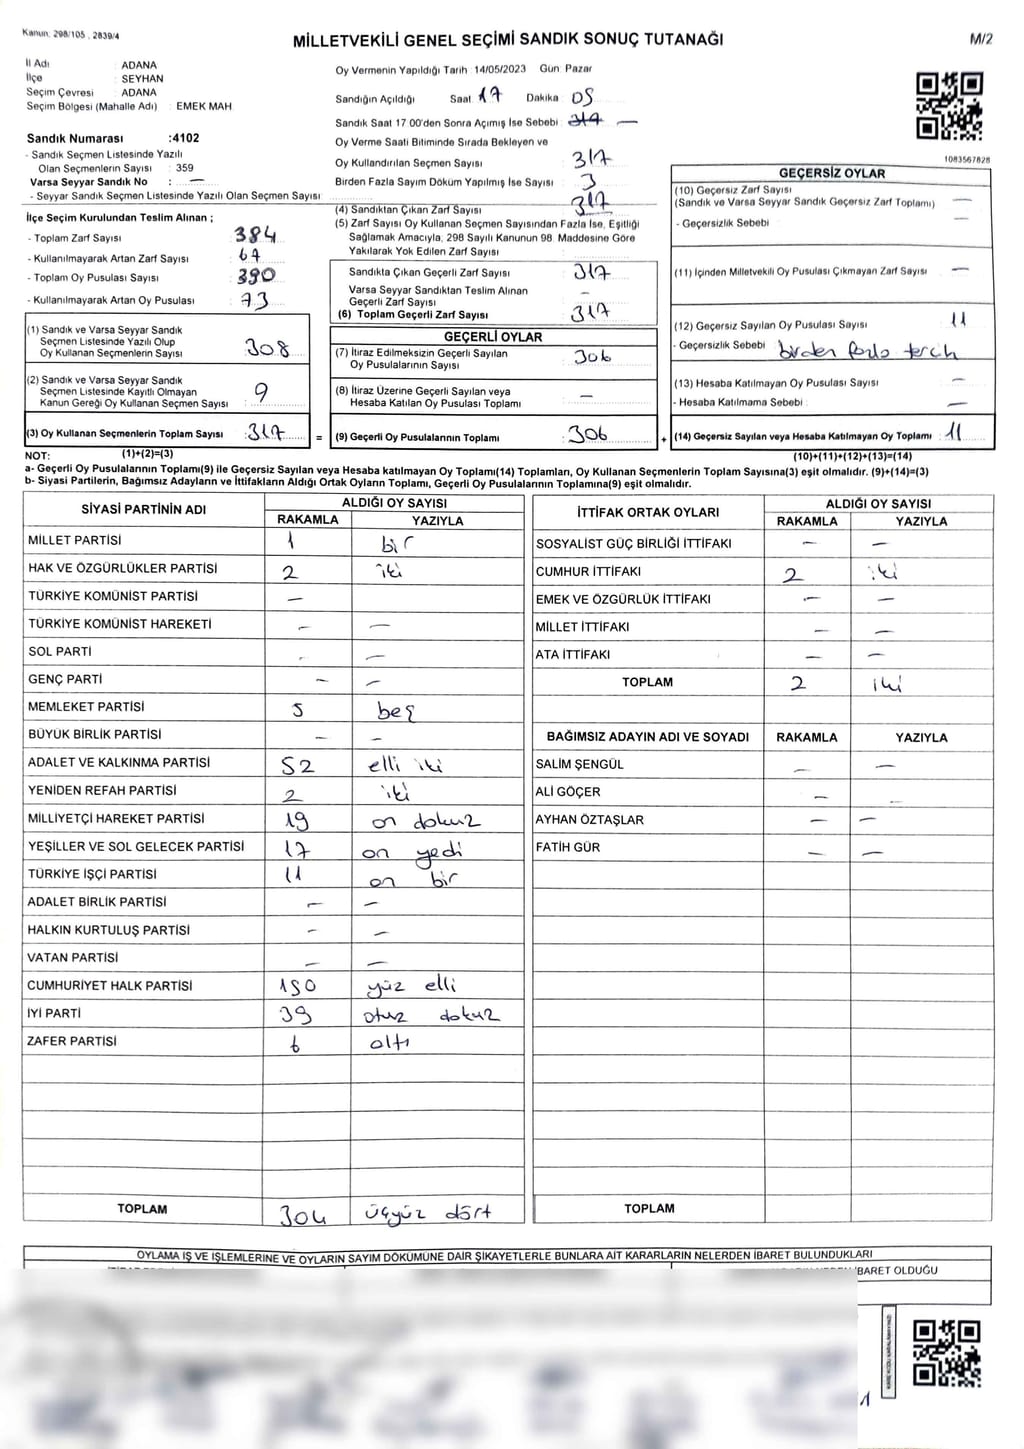 Kanun: 298/105 , 2839/4
MİLLETVEKİLİ GENEL SEÇİMİ SANDIK SONUÇ TUTANAĞI
M/2
İl Adı : ADANA
İlçe : SEYHAN
Seçim Çevresi : ADANA
Seçim Bölgesi (Mahalle Adı) : EMEK MAH
Sandık Numarası :4102
- Sandık Seçmen Listesinde Yazılı
Olan Seçmenlerin Sayısı : 359
Varsa Seyyar Sandık No : —
- Seyyar Sandık Seçmen Listesinde Yazılı Olan Seçmen Sayısı :
İlçe Seçim Kurulundan Teslim Alınan ;
- Toplam Zarf Sayısı : 384
- Kullanılmayarak Artan Zarf Sayısı : 67
- Toplam Oy Pusulası Sayısı : 390
- Kullanılmayarak Artan Oy Pusulası : 73
(1) Sandık ve Varsa Seyyar Sandık
Seçmen Listesinde Yazılı Olup
Oy Kullanan Seçmenlerin Sayısı : 308
(2) Sandık ve Varsa Seyyar Sandık
Seçmen Listesinde Kayıtlı Olmayan
Kanun Gereği Oy Kullanan Seçmen Sayısı : 9
(3) Oy Kullanan Seçmenlerin Toplam Sayısı : 317
Oy Vermenin Yapıldığı Tarih : 14/05/2023 Gün : Pazar
Sandığın Açıldığı Saat 17 Dakika : 05
Sandık Saat 17 00'den Sonra Açımış İse Sebebi : 317 —
Oy Verme Saati Bitiminde Sırada Bekleyen ve
Oy Kullandırılan Seçmen Sayısı : 317
Birden Fazla Sayım Döküm Yapılmış İse Sayısı : 3
(4) Sandıktan Çıkan Zarf Sayısı : 317
(5) Zarf Sayısı Oy Kullanan Seçmen Sayısından Fazla İse, Eşitliği
Sağlamak Amacıyla, 298 Sayılı Kanunun 98. Maddesine Göre
Yakılarak Yok Edilen Zarf Sayısı :
Sandıkta Çıkan Geçerli Zarf Sayısı : 317
Varsa Seyyar Sandıktan Teslim Alınan
Geçerli Zarf Sayısı : —
(6) Toplam Geçerli Zarf Sayısı : 317
GEÇERLİ OYLAR
(7) İtiraz Edilmeksizin Geçerli Sayılan
Oy Pusulalarının Sayısı : 306
(8) İtiraz Üzerine Geçerli Sayılan veya
Hesaba Katılan Oy Pusulası Toplamı : —
= (9) Geçerli Oy Pusulalarının Toplamı : 306
1083567828
GEÇERSİZ OYLAR
(10) Geçersiz Zarf Sayısı : —
(Sandık ve Varsa Seyyar Sandık Geçersiz Zarf Toplamı)
- Geçersizlik Sebebi : —
(11) İçinden Milletvekili Oy Pusulası Çıkmayan Zarf Sayısı : —
(12) Geçersiz Sayılan Oy Pusulası Sayısı : 11
- Geçersizlik Sebebi : birden fazla tercih
(13) Hesaba Katılmayan Oy Pusulası Sayısı : —
- Hesaba Katılmama Sebebi : —
+ (14) Geçersiz Sayılan veya Hesaba Katılmayan Oy Toplamı : 11
NOT: (1)+(2)=(3)
(10)+(11)+(12)+(13)=(14)
a- Geçerli Oy Pusulalarının Toplamı(9) ile Geçersiz Sayılan veya Hesaba katılmayan Oy Toplamı(14) Toplamları, Oy Kullanan Seçmenlerin Toplam Sayısına(3) eşit olmalıdır. (9)+(14)=(3)
b- Siyasi Partilerin, Bağımsız Adayların ve İttifakların Aldığı Ortak Oyların Toplamı, Geçerli Oy Pusulalarının Toplamına(9) eşit olmalıdır.
SİYASİ PARTİNİN ADI ALDIĞI OY SAYISI
RAKAMLA YAZIYLA
MİLLET PARTİSİ 1 bir
HAK VE ÖZGÜRLÜKLER PARTİSİ 2 iki
TÜRKİYE KOMÜNİST PARTİSİ —
TÜRKİYE KOMÜNİST HAREKETİ — —
SOL PARTİ — —
GENÇ PARTİ — —
MEMLEKET PARTİSİ 5 beş
BÜYÜK BİRLİK PARTİSİ — —
ADALET VE KALKINMA PARTİSİ 52 elli iki
YENİDEN REFAH PARTİSİ 2 iki
MİLLİYETÇİ HAREKET PARTİSİ 19 on dokuz
YEŞİLLER VE SOL GELECEK PARTİSİ 17 on yedi
TÜRKİYE İŞÇİ PARTİSİ 11 on bir
ADALET BİRLİK PARTİSİ — —
HALKIN KURTULUŞ PARTİSİ — —
VATAN PARTİSİ — —
CUMHURİYET HALK PARTİSİ 150 yüz elli
İYİ PARTİ 39 otuz dokuz
ZAFER PARTİSİ 6 altı
TOPLAM 304 üçyüz dört
İTTİFAK ORTAK OYLARI ALDIĞI OY SAYISI
RAKAMLA YAZIYLA
SOSYALİST GÜÇ BİRLİĞİ İTTİFAKI — —
CUMHUR İTTİFAKI 2 iki
EMEK VE ÖZGÜRLÜK İTTİFAKI — —
MİLLET İTTİFAKI — —
ATA İTTİFAKI — —
TOPLAM 2 iki
BAĞIMSIZ ADAYIN ADI VE SOYADI RAKAMLA YAZIYLA
SALİM ŞENGÜL — —
ALİ GÖÇER — —
AYHAN ÖZTAŞLAR — —
FATİH GÜR — —
TOPLAM
OYLAMA İŞ VE İŞLEMLERİNE VE OYLARIN SAYIM DÖKÜMÜNE DAİR ŞİKAYETLERLE BUNLARA AİT KARARLARIN NELERDEN İBARET BULUNDUKLARI
İBARET OLDUĞU